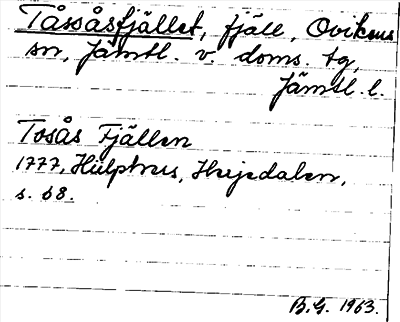 Tåssåsfjället, fjäll, Ovikens
sn, Jämtl. v. doms. tg,
Jämtl. l.
Tosås Fjällen
1777, Hülphrs, Herjedalen,
s. 68.
B.G. 1963.